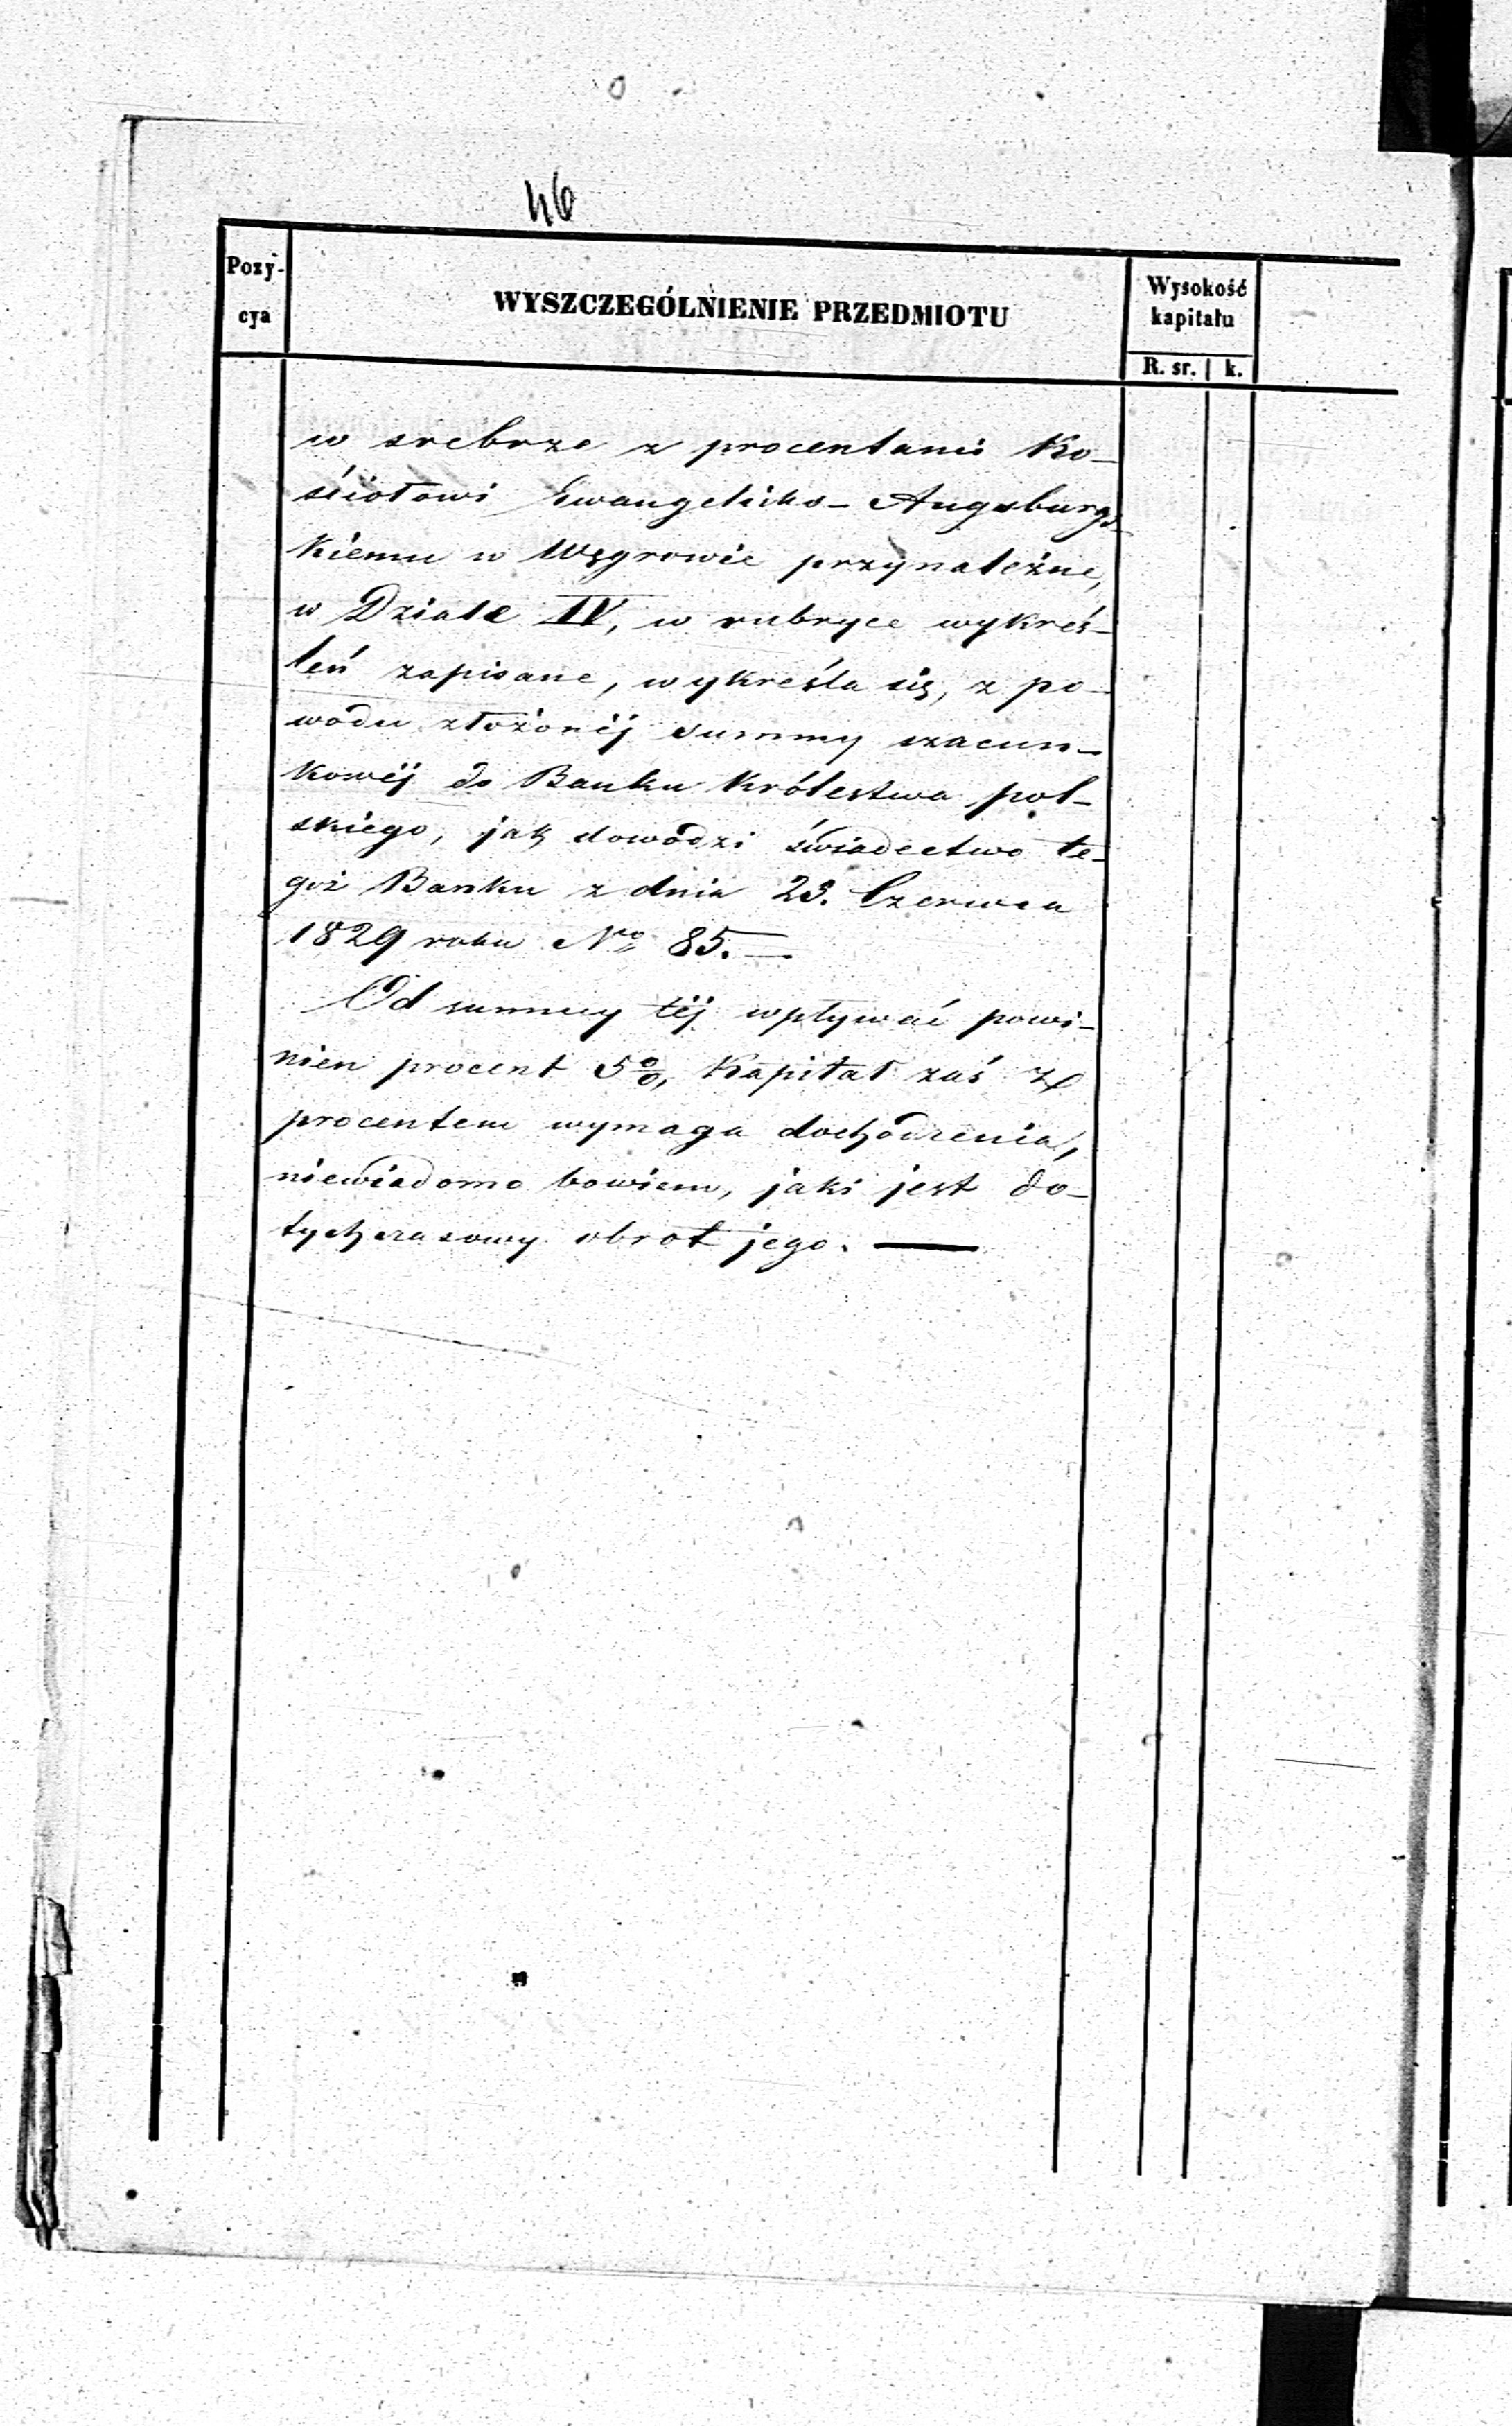 46
Pozy-
cya
WYSZCZEGÓLNIENIE PRZEDMIOTU
Wysokość
kapitału
R. sr. k.
w srebrze z procentami Ko-
ściołowi Ewangelicko-Augsburgs-
kiemu w Węgrowie przynależne,
w Dziale IV, w rubryce wykreś-
leń zapisane, wykreśla się, z po-
wodu złożonéj summy szacun-
kowéj do Banku Królestwa pol-
skiego, jak dowodzi świadectwo te-
goż Banku z dnia 23. Czerwca
1829 roku No 85. —
Od summy téj wpływać powi-
nien procent 5%, Kapitał zaś z
procentem wymaga dochodzenia,
niewiadomo bowiem, jaki jest do-
tychczasowy obrót jego. —